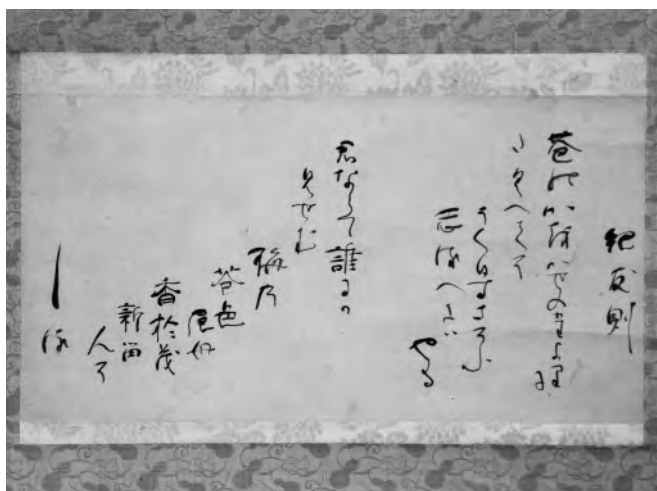 紀友則
花のかをかせのたよりに
たくへてそ
うくひすさそふ
志るへには
やる
君ならて誰にか
見せむ
梅乃
花色
遠母
香於茂
新留
人そ
しる